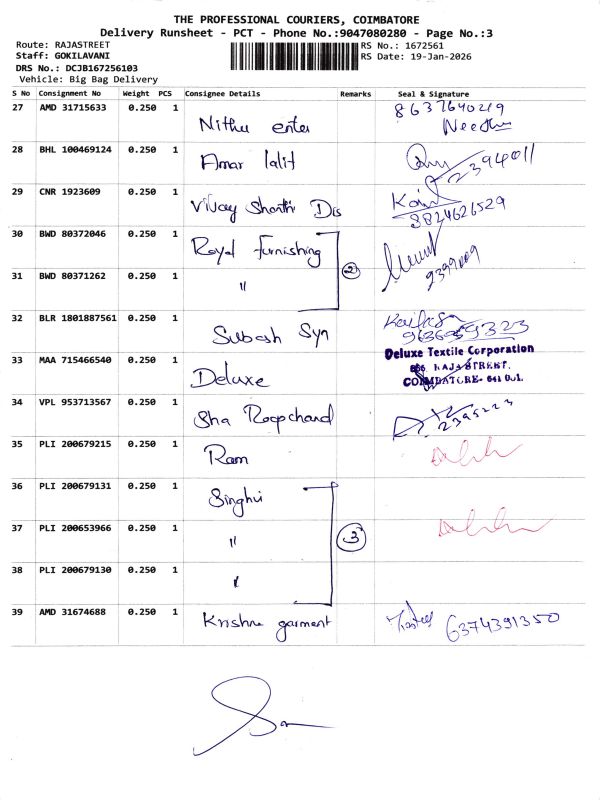 THE PROFESSIONAL COURIERS, COIMBATORE
Delivery Runsheet - PCT - Phone No.:9047080280 - Page No.:3
Route: RAJASTREET
Staff: GOKILAVANI
DRS No.: DCJB167256103
Vehicle: Big Bag Delivery
RS No.: 1672561
RS Date: 19-Jan-2026
S No Consignment No Weight PCS Consignee Details Remarks Seal & Signature
27 AMD 31715633 0.250 1 Nithu enter 8637640219
28 BHL 100469124 0.250 1 Amar lalit 2394011
29 CNR 1923609 0.250 1 Vijay Shanthi Dis 3824626529
30 BWD 80372046 0.250 1 Royal Furnishing
2
31 BWD 80371262 0.250 1 " 2399009
32 BLR 1801887561 0.250 1 Subash Syn
33 MAA 715466540 0.250 1 Deluxe
Deluxe Textile Corporation
RAJA STREET,
COIMBATORE- 641 001.
34 VPL 953713567 0.250 1 Sha Roopchand 2395223
35 PLI 200679215 0.250 1 Ram
36 PLI 200679131 0.250 1 Singhvi
37 PLI 200653966 0.250 1 " 3
38 PLI 200679130 0.250 1 "
39 AMD 31674688 0.250 1 Krishna garment 6374391350